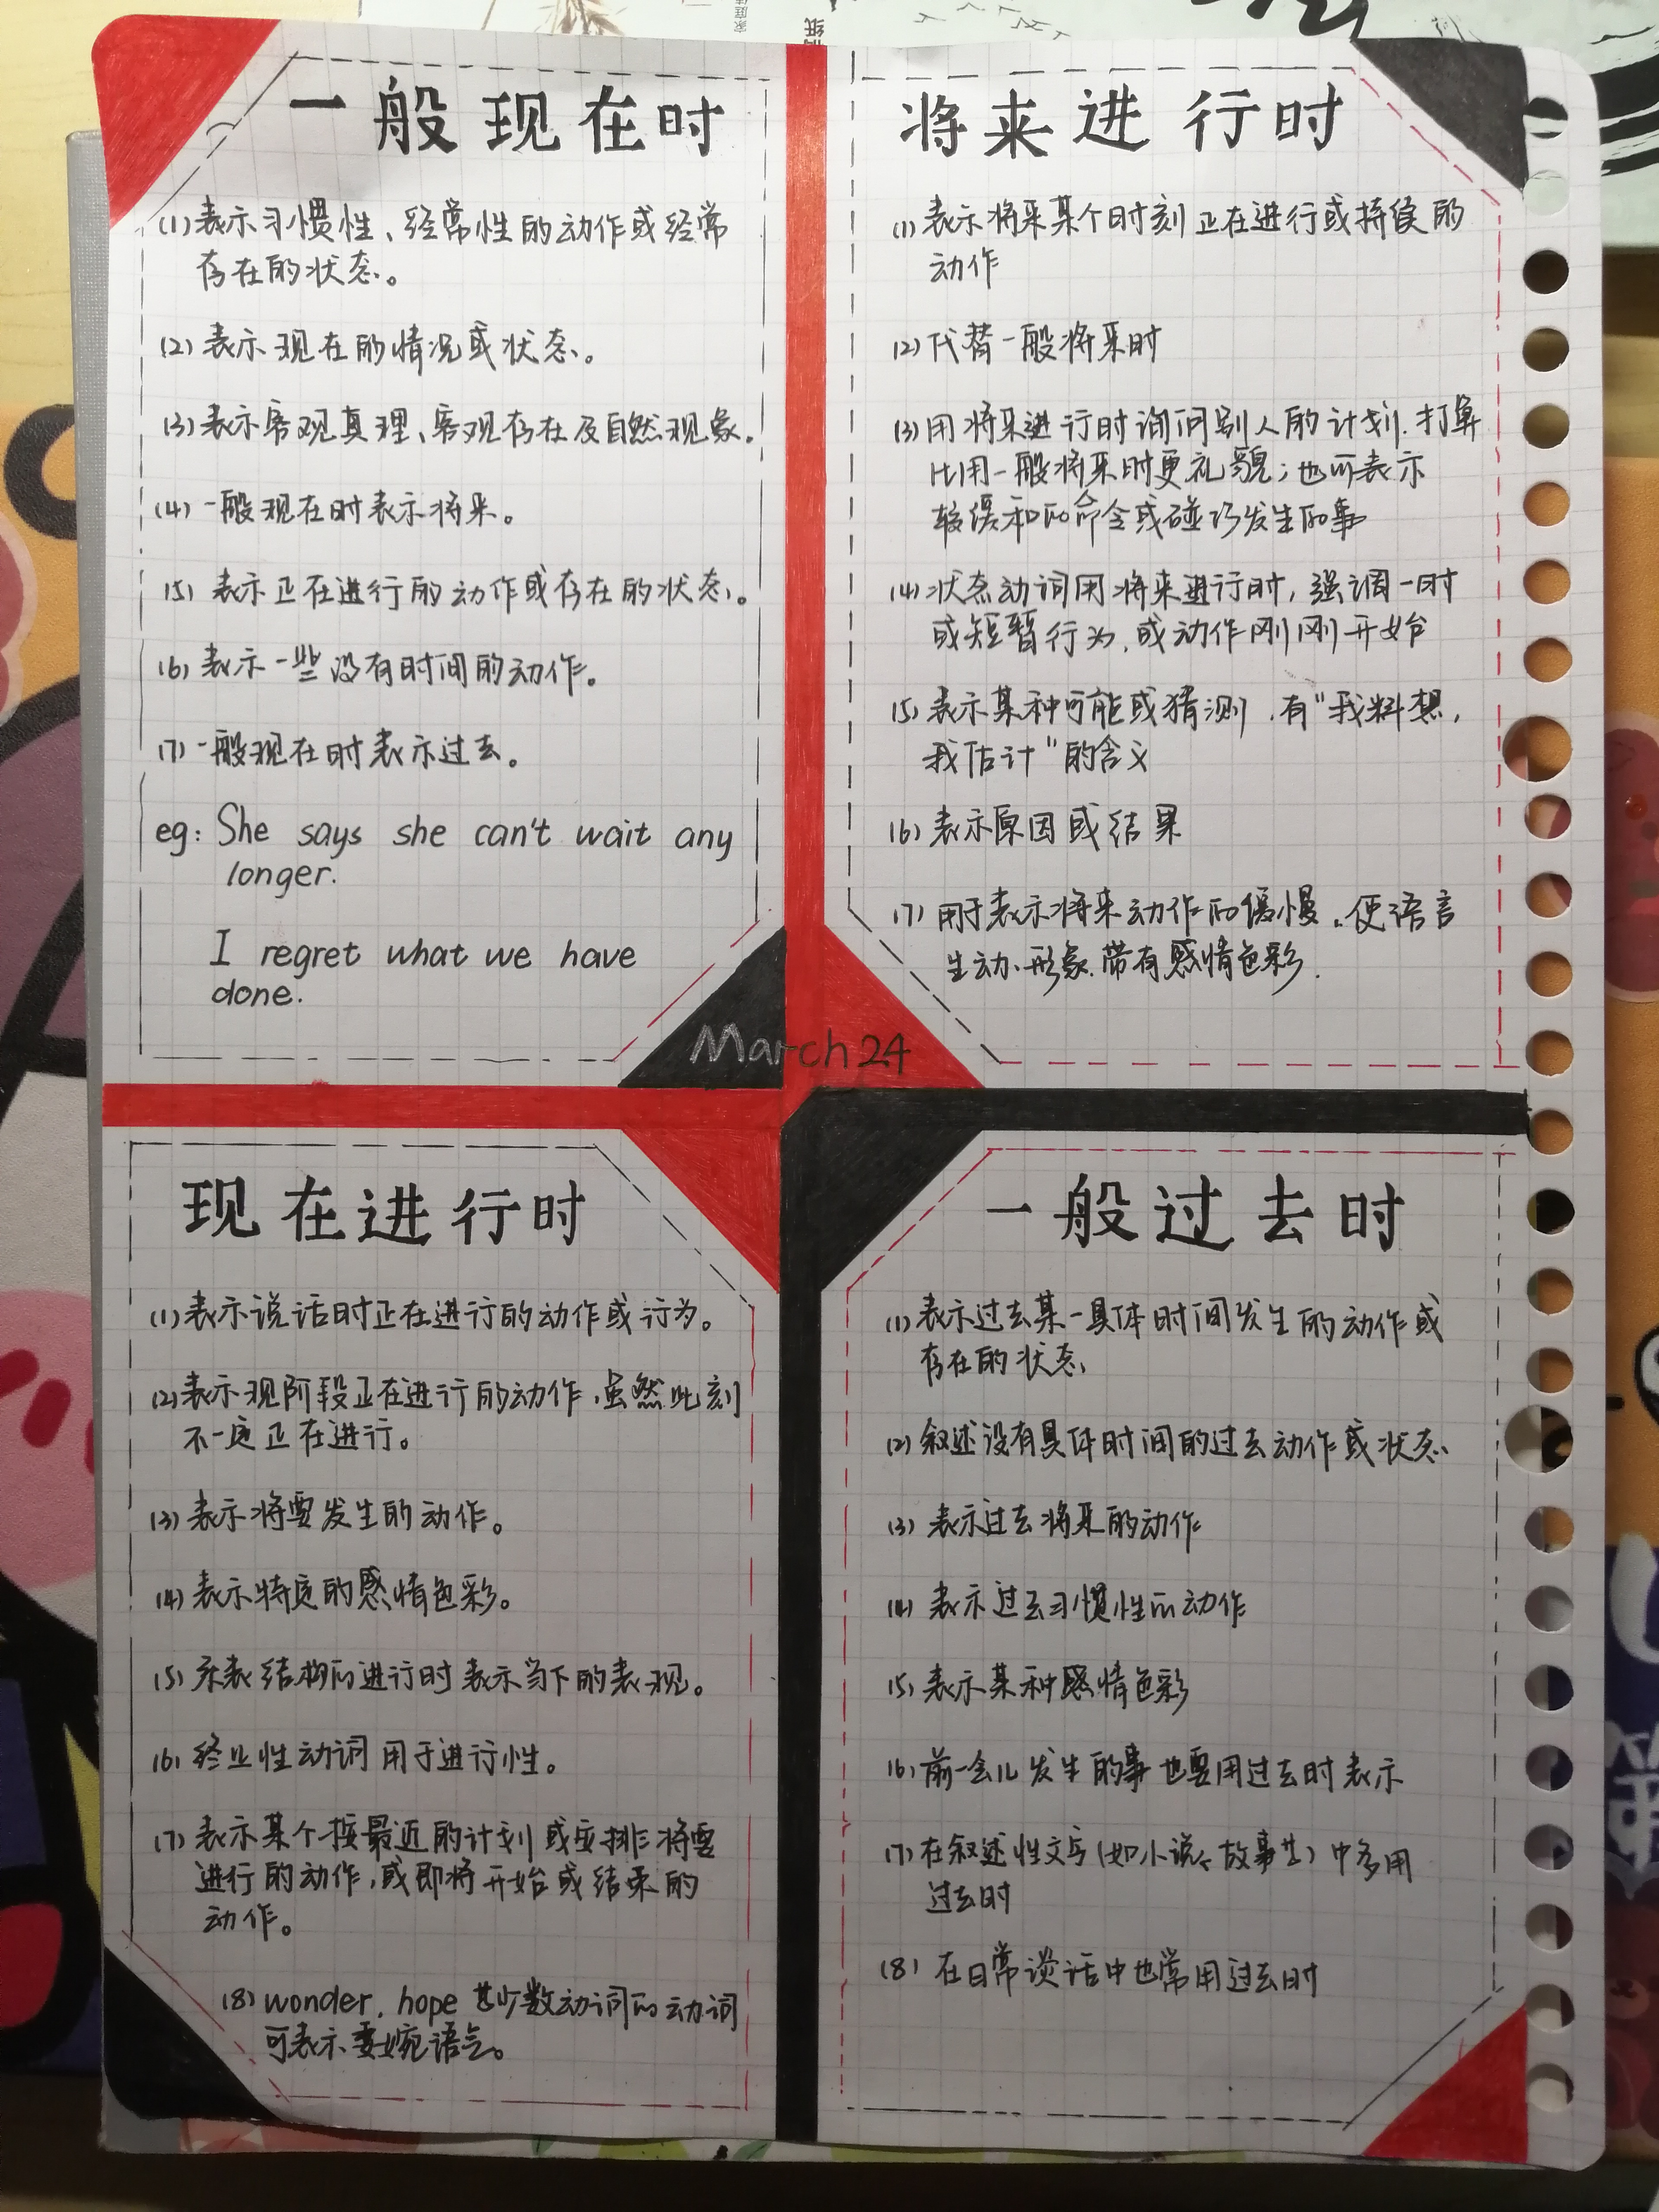 一般现在时
(1) 表示习惯性、经常性的动作或经常
存在的状态。
(2) 表示现在的情况或状态。
(3) 表示客观真理、客观存在及自然现象。
(4) 一般现在时表示将来。
(5) 表示正在进行的动作或存在的状态。
(6) 表示一些没有时间的动作。
(7) 一般现在时表示过去。
eg: She says she can't wait any
longer.
I regret what we have
done.
将来进行时
(1) 表示将来某个时刻正在进行或持续的
动作
(2) 代替一般将来时
(3) 用将来进行时询问别人的计划.打算
比用一般将来时更礼貌;也可表示
较缓和的命令或碰巧发生的事
(4) 状态动词用将来进行时,强调一时
或短暂行为,或动作刚刚开始
(5) 表示某种可能或猜测,有"我料想,
我估计"的含义
(6) 表示原因或结果
(7) 用于表示将来动作的缓慢.使语言
生动、形象.带有感情色彩.
March 24
现在进行时
(1) 表示说话时正在进行的动作或行为。
(2) 表示现阶段正在进行的动作,虽然此刻
不一定正在进行。
(3) 表示将要发生的动作。
(4) 表示特定的感情色彩。
(5) 系表结构的进行时表示当下的表现。
(6) 终止性动词用于进行性。
(7) 表示某个按最近的计划或安排将要
进行的动作,或即将开始或结束的
动作。
(8) wonder, hope 等少数动词的动词
可表示委婉语气。
一般过去时
(1) 表示过去某一具体时间发生的动作或
存在的状态
(2) 叙述没有具体时间的过去动作或状态
(3) 表示过去将来的动作
(4) 表示过去习惯性的动作
(5) 表示某种感情色彩
(6) 前一会儿发生的事也要用过去时表示
(7) 在叙述性文字(如小说、故事等)中多用
过去时
(8) 在日常谈话中也常用过去时